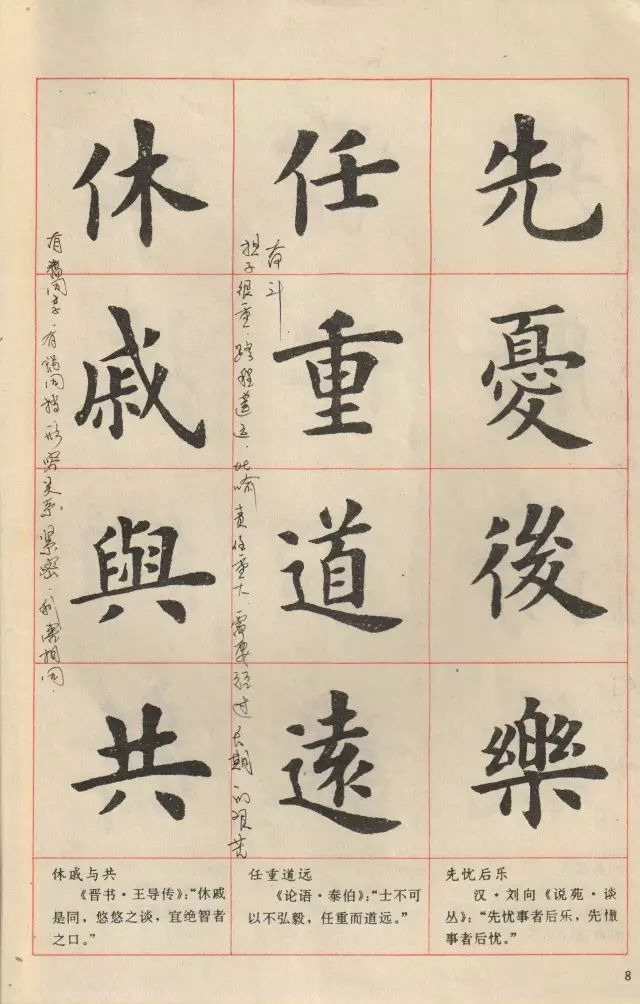 先憂後樂
任重道遠
担子很重,路程遥远,比喻责任重大,需要经过长期的艰苦
奋斗
休戚與共
有福同享,有祸同挡,形容关系紧密,利害相同.
先忧后乐
汉·刘向《说苑·谈
丛》:“先忧事者后乐,先慠
事者后忧。”
任重道远
《论语·泰伯》:“士不可
以不弘毅,任重而道远。”
休戚与共
《晋书·王导传》:“休戚
是同,悠悠之谈,宜绝智者
之口。”
8